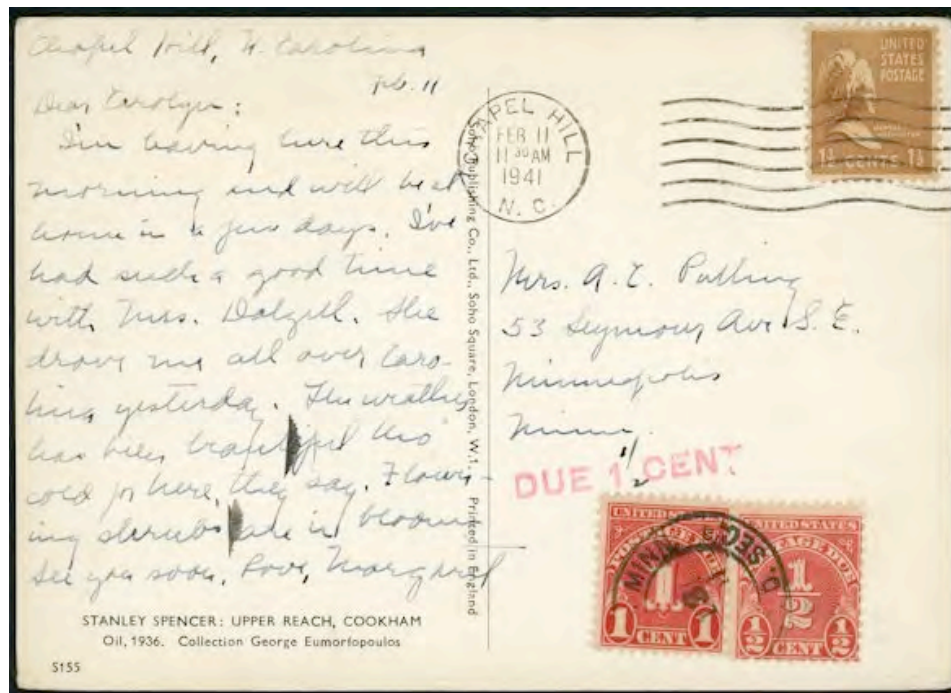 Chapel Hill, N. Carolina
Feb. 11
Dear Carolyn:
I'm leaving here this
morning and will be at
home in a few days. I've
had such a good time
with Mrs. Dalzell. She
drove me all over Caro-
lina yesterday. The weather
has been beautiful tho'
cold for here, they say. Flower-
ing shrubs are in bloom
See you soon, Love, Margaret
STANLEY SPENCER: UPPER REACH, COOKHAM
Oil, 1936. Collection George Eumorfopoulos
S155
Soho Publishing Co., Ltd., Soho Square, London, W.1. Printed in England
CHAPEL HILL
FEB 11
11 30 AM
1941
N. C.
UNITED
STATES
POSTAGE
1½ CENTS 1½
Mrs. A. C.
53 Seymour Ave S. E.
Minneapolis
Minn.
DUE 1 CENT
1/2
UNITED STATES
POSTAGE DUE
1
1 CENT 1
UNITED STATES
POSTAGE DUE
1/2
½ CENT ½
MINN